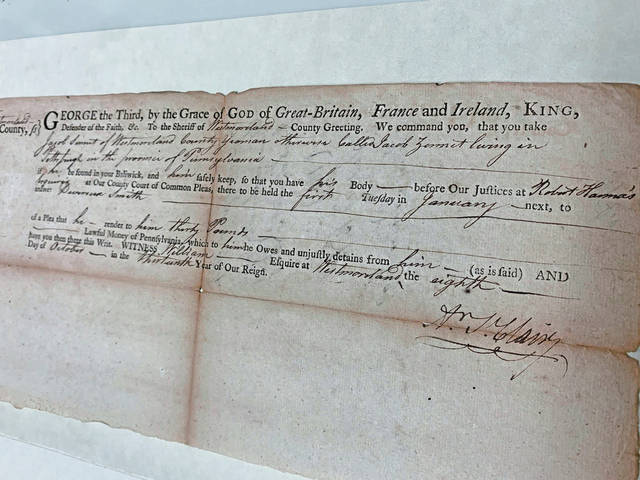 County, ss} GEORGE the Third, by the Grace of GOD of Great-Britain, France and Ireland, KING,
Defender of the Faith, &c. To the Sheriff of Westmorland County Greeting. We command you, that you take
Jacob Somit of Westmorland County Yeoman otherwise Called Jacob Zomet living in
in the province of Pennsylvania
if he be found in your Bailiwick, and him safely keep, so that you have his Body before Our Justices at Robert Hanna's
at Our County Court of Common Pleas, there to be held the first Tuesday in January next, to
answer Devereux Smith
of a Plea that he render to him thirty Pounds
Lawful Money of Pennsylvania, which to him he Owes and unjustly detains from him (as is said) AND
have you then there this Writ. WITNESS William Esquire at Westmorland the eighth
Day of October in the thirteenth Year of Our Reign.
Ar. St. Clair